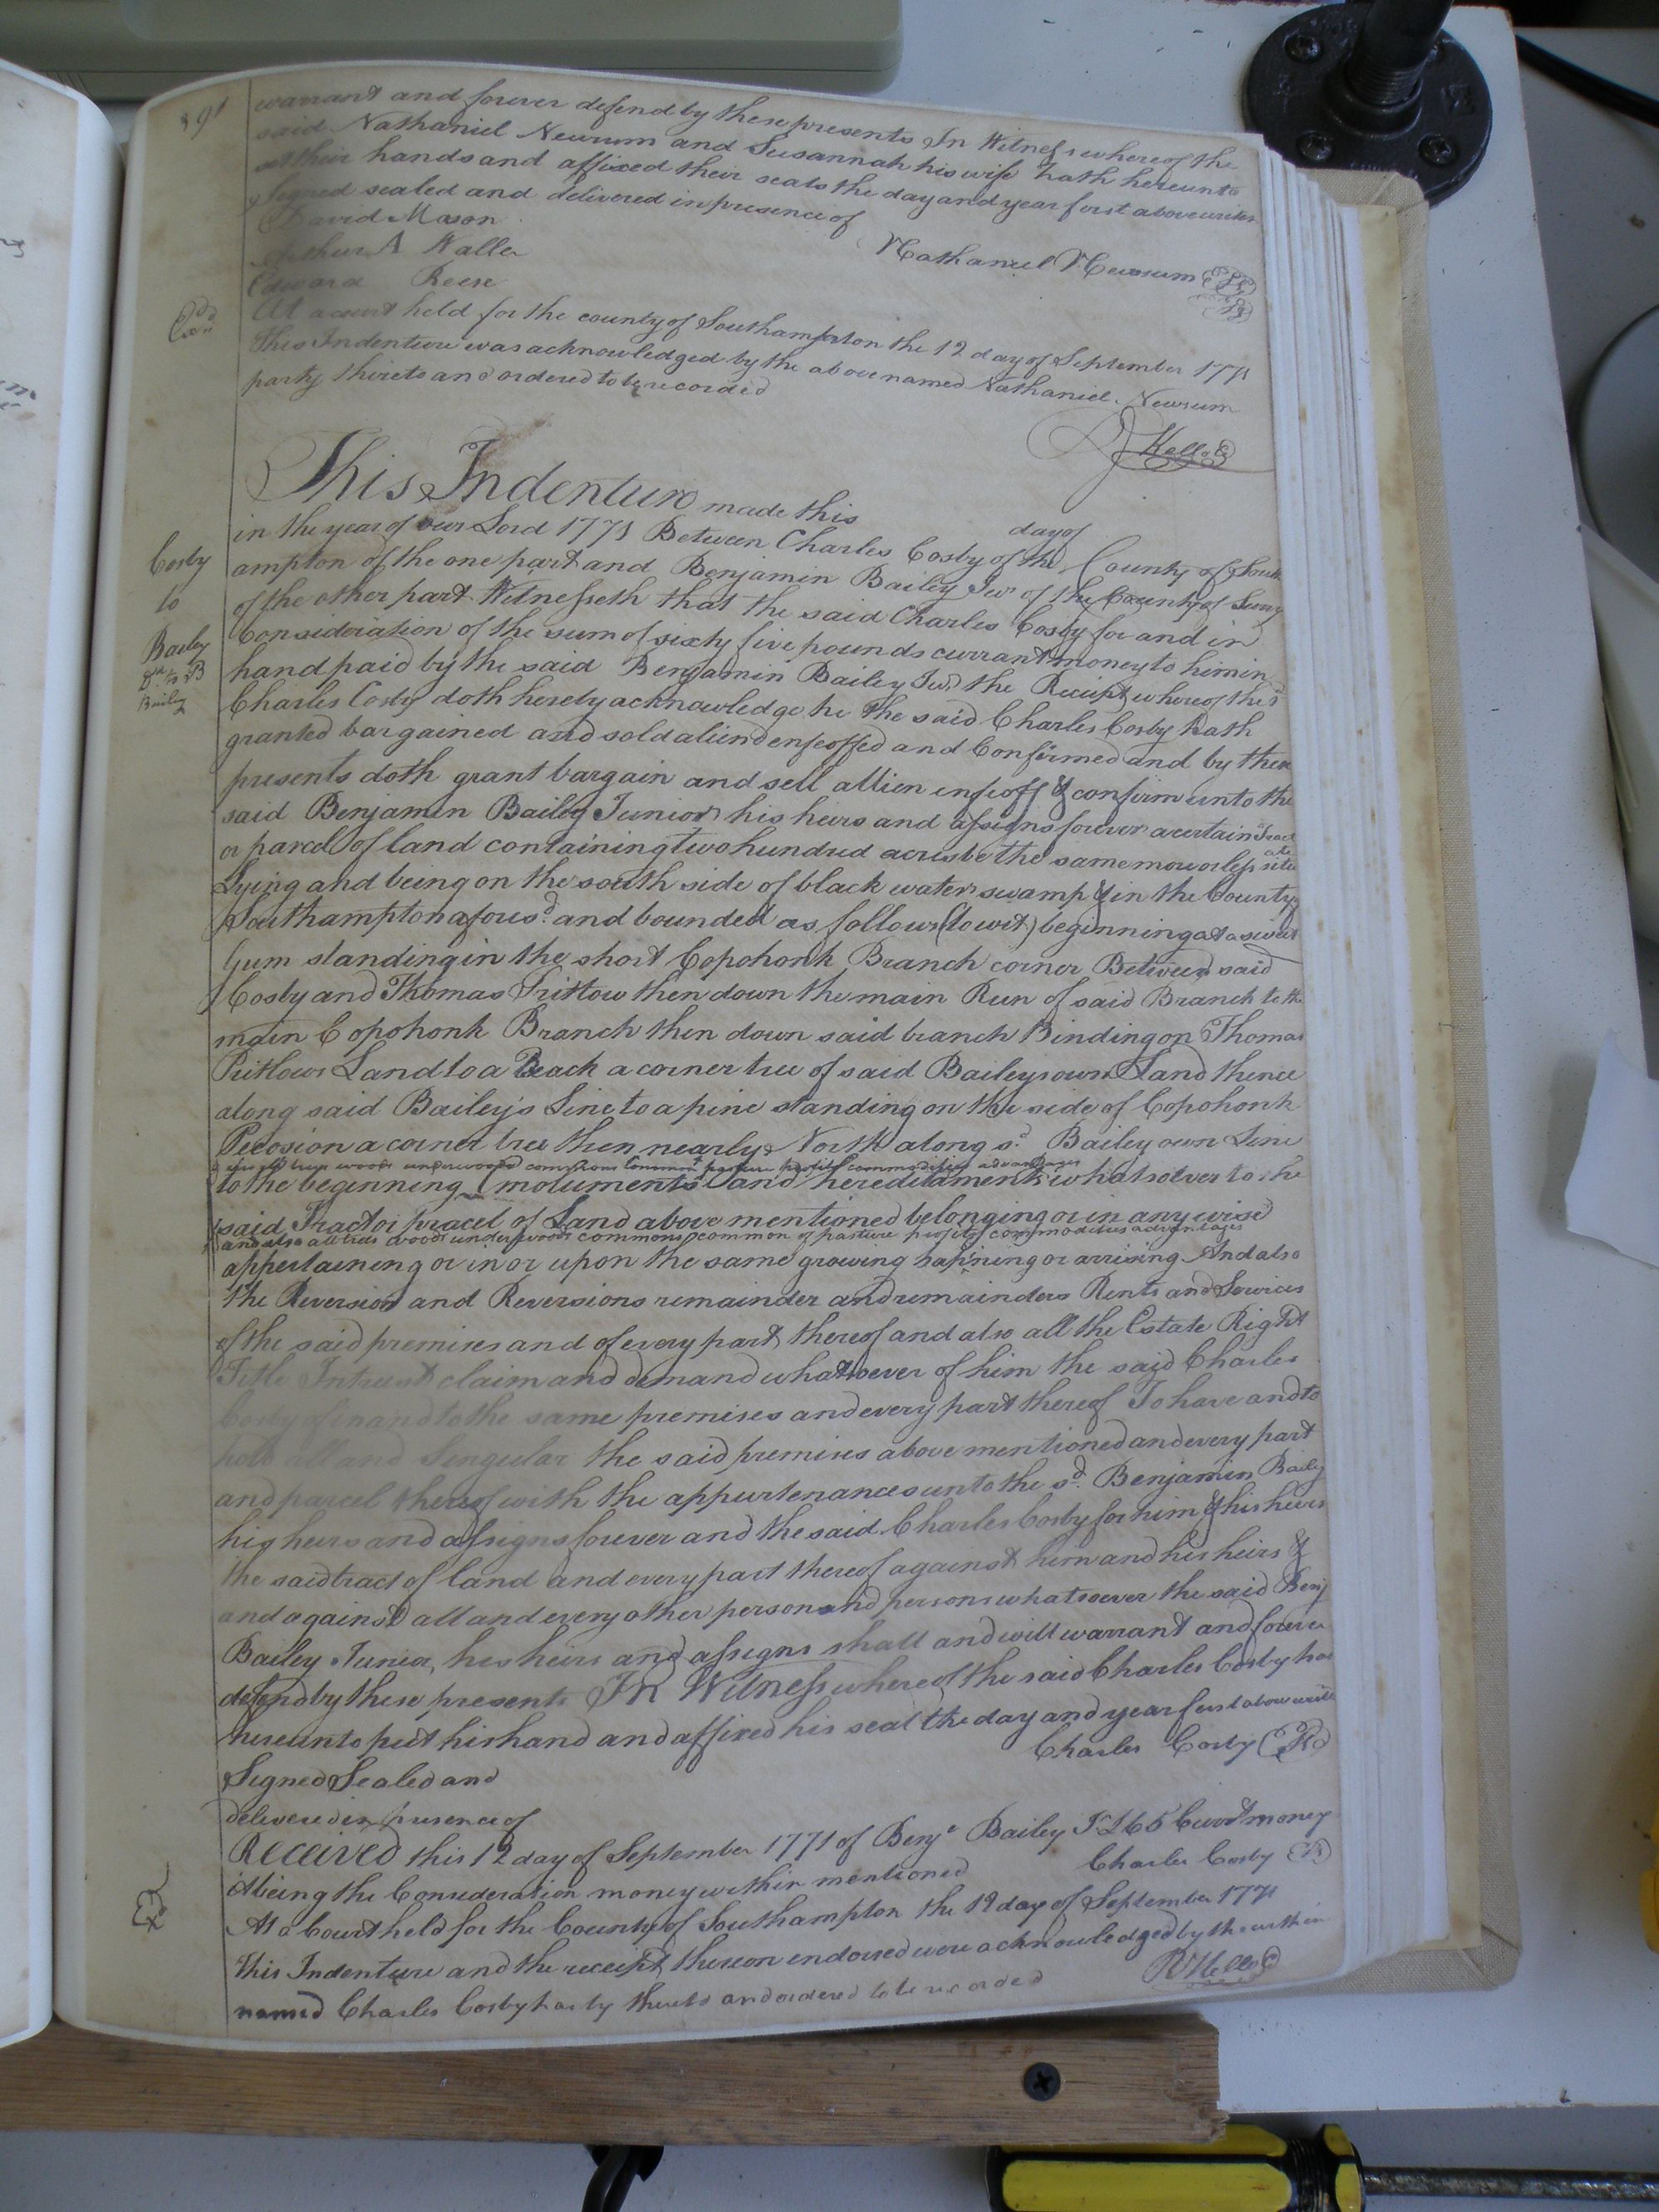 warrant and forever defend by these presents In Witness whereof the
said Nathaniel Newsum and Susannah his wife hath hereunto
set their hands and affixed their seals the day and year first above written
Signed sealed and delivered in presence of
David Mason
Arthur A Waller
Nathaniel Newsum
Edward Reese
Exd
At a court held for the county of Southampton the 12 day of September 1771
This Indenture was acknowledged by the above named Nathaniel Newsum
party thereto and ordered to be recorded
This Indenture made this day of
in the year of our Lord 1771 Between Charles Cosby of the County of South
Cosby
to
Bailey
ampton of the one part and Benjamin Bailey Junr of the County of Surry
of the other part Witnesseth that the said Charles Cosby for and in
Consideration of the sum of sixty five pounds currant money to him in
Bailey
hand paid by the said Benjamin Bailey Junr the Receipt whereof the sd
Charles Cosby doth hereby acknowledge he the said Charles Cosby hath
granted bargained and sold aliend enfeoffed and Confirmed and by these
presents doth grant bargain and sell allien enfeoff & confirm unto the
said Benjamin Bailey Junior his heirs and assigns forever a certain Tract
or parcel of land containing two hundred acres be the same more or less situate
Lying and being on the south side of black water swamp & in the County of
Southampton afoused and bounded as follows (to wit) beginning at a sweet
Gum standing in the short Copohonk Branch corner Between said
Cosby and Thomas Pritlow then down the main Run of said Branch to the
main Copohonk Branch then down said branch Binding on Thomas
Pritlows Land to a Beach a corner tree of said Baileys own Land thence
along said Bailey's Line to a pine standing on the side of Copohonk
Pecosion a corner tree then nearly North along sd Bailey own Line
trees woods underwoods commons Common pasture profits commodities advantages
to the beginning (moluments and hereditaments whatsoever to the
said Tract or pracel of Land above mentioned belonging or in any wise
and also all trees woods underwoods commons common of pasture profits commodities advantages
appertaining or in or upon the same growing hap'ning or arrising And also
the Reversion and Reversions remainder and remainders Rents and Services
of the said premises and of every part thereof and also all the Estate Right
Title Intrust claim and demand whatsoever of him the said Charles
Cosby of in and to the same premises and every part thereof To have and to
hold all and Singular the said premises above mentioned and every part
and parcel thereof with the appurtenances unto the sd Benjamin Bailey
his heirs and assigns forever and the said Charles Cosby for him & his heirs
the said tract of land and every part thereof against him and his heirs &
and against all and every other person and persons whatsoever the said Benj
Bailey Junior, his heirs and assigns shall and will warrant and forever
defend by these presents In Witness whereof the said Charles Cosby has
hereunto put his hand and affixed his seal the day and year first above writte
Charles Cosby
Signed Sealed and
delivered in presence of
Received this 12 day of September 1771 of Benja Bailey J £65 Currt money
it being the Consideration money within mentioned Charles Cosby
Exd
At a Court held for the County of Southampton the 12 day of September 1771
This Indenture and the receipt thereon endorsed were acknowledged by the within
named Charles Cosby party thereto and ordered to be recorded